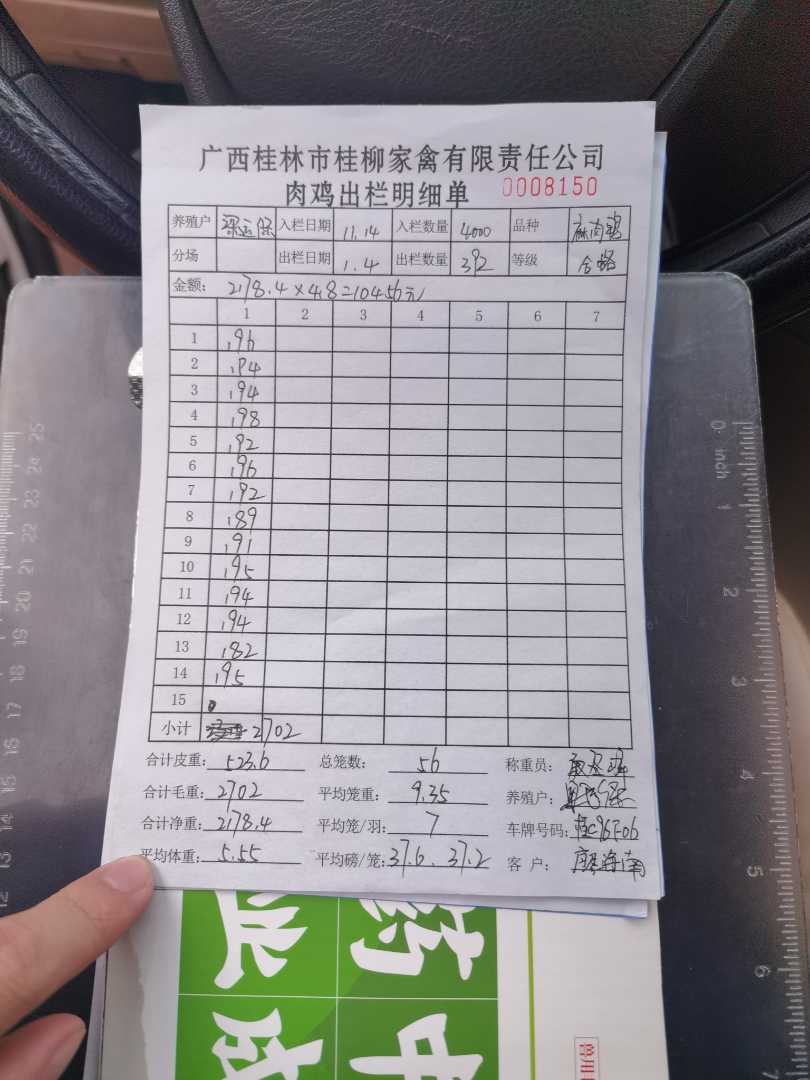 广西桂林市桂柳家禽有限责任公司
肉鸡出栏明细单 0008150
养殖户 入栏日期 11.14 入栏数量 4000 品种 麻肉鸡
分场 出栏日期 1.4 出栏数量 392 等级 合格
金额: 2178.4×4.8=10456元
1 2 3 4 5 6 7
1 196
2 194
3 194
4 198
5 192
6 196
7 192
8 189
9 191
10 195
11 194
12 194
13 182
14 195
15
小计 2702
合计皮重: 523.6 总笼数: 56 称重员:
合计毛重: 2702 平均笼重: 9.35 养殖户:
合计净重: 2178.4 平均笼/羽: 7 车牌号码: 桂C96506
平均体重: 5.55 平均磅/笼: 37.6. 37.2 客 户: 廖海南
0 inch 1 2 3 4 5 6 7
25 24 23 22 21 20 19 18 17 16 15 14 13 12
药 业
中 成
兽用